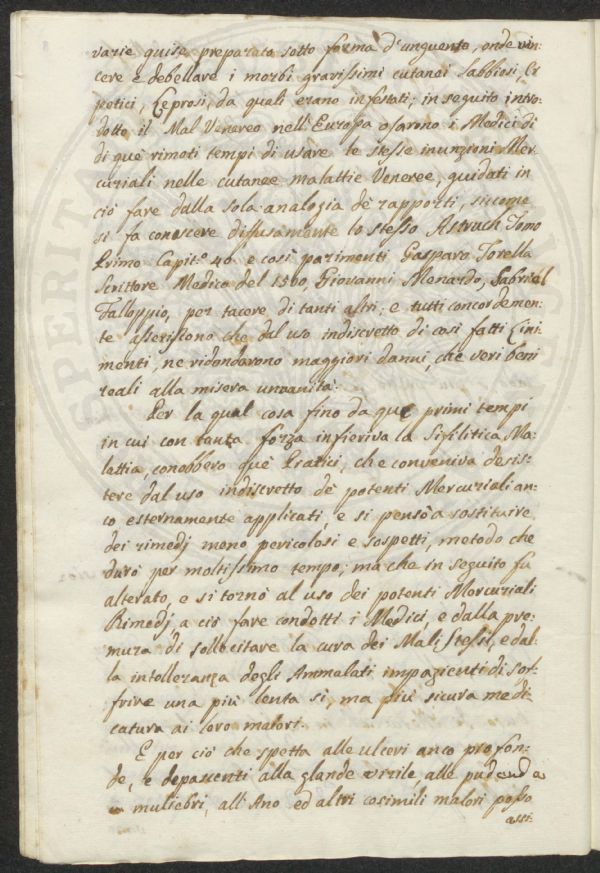 varie guise preparata sotto forma d'unguento, onde vin=
cere e debellare i morbi gravissimi cutanei Sabbiosi, Er
petici, Leprosi, da quali erano infestati; in seguito intro=
dotto il Mal Venereo nell'Europa osarono i Medici di
di què rimoti tempi di usare le stesse inunzioni Mer=
curiali nelle cutanee malattie Veneree, guidati in
ciò fare dalla sola analogia dè rapporti, siccome
si fa conoscere difusamente lo stesso Astruch Tomo
Primo Capit.º 40 e così parimenti Gasparo Torella
Scrittore Medico del 1500, Giovanni Menardo, Gabriel
Falloppio, per tacere di tanti altri; e tutti concordemen=
te asseriscono che dal uso indiscretto di così fatti Lini=
menti, ne ridondarono maggiori danni, che veri beni
reali alla misera umanità.
Per la qual cosa fino da què primi tempi
in cui con tanta forza infieriva la Sifilitica Ma=
lattia, conobbero què Pratici, che conveniva desis=
tere dal uso indiscretto dè potenti Mercuriali an=
co esternamente applicati, e si pensò a sostituire
dei rimedj meno pericolosi e sospetti, metodo che
durò per moltissimo tempo; ma che in seguito fù
alterato, e si tornò al uso dei potenti Mercuriali
Rimedj a ciò fare condotti i Medici, e dalla pre=
mura di sollecitare la cura dei Mali stessi, e dal=
la intolleranza degli Ammalati impazienti di sof=
frire una più lenta sì, ma più sicura medi=
catura ai loro malori.
E per ciò che spetta alle ulceri anco profon=
de, e depascenti alla glande virile, alle pudenda
muliebri, all'Ano ed altri cosimili malori posso
assi=